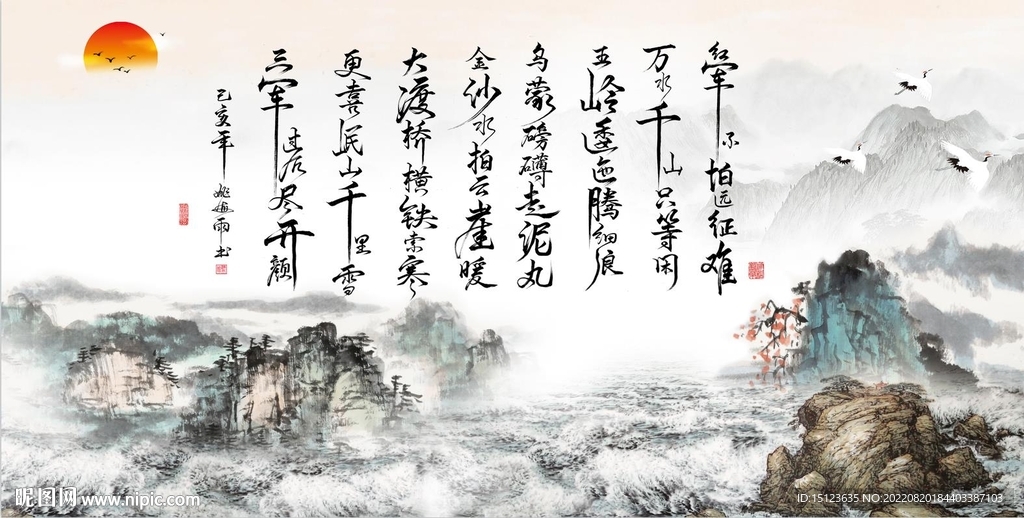 红军不怕远征难
万水千山只等闲
五岭逶迤腾细浪
乌蒙磅礴走泥丸
金沙水拍云崖暖
大渡桥横铁索寒
更喜岷山千里雪
三军过后尽开颜
己亥年 雨书
昵图网 www.nipic.com
ID:15123635 NO:20220820184403387103